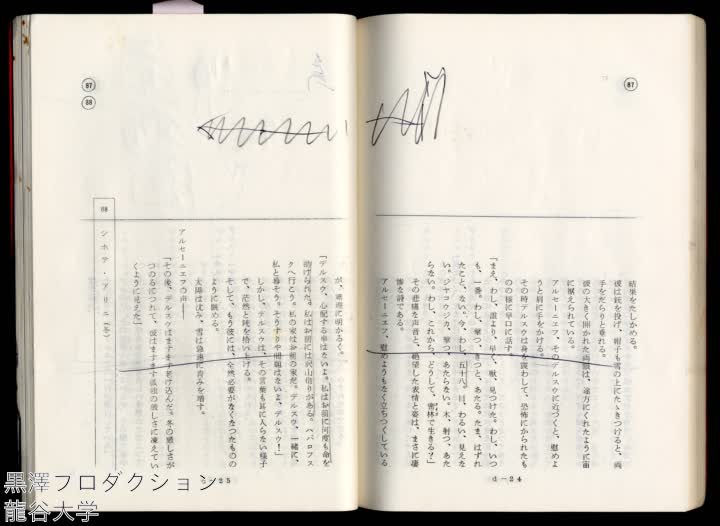 87
結果をたしかめる。
彼は銃を投げ、帽子も雪の上にたゝきつけると、両
手をだらりと垂れる。
彼の大きく開かれた両眼は、遠方にくれたように宙
に据えられている。
アルセーニエフ、そのデルスウに近づくと、慰めよ
うと肩に手をかける。
その時デルスウは身を震わして、恐怖にかられたも
のの様に早口に話す。
「まえ、わし、誰より、早く、獣、見つけた。わし、いつ
も、一番。わし、撃つ、きつと、あたる。たま、はずれ
たこと、ない。今、わし、五十八。目、わるい、見えな
い。ジャコウジカ、撃つ、あたらない。木、射つ、あた
らない。わし、これから、どうして、密林で生きる？」
その悲痛な声音と、絶望した表情と姿は、まさに凄
惨な詩である。
アルセーニエフ、慰めようもなく立ちつくしている
d－24
87
88
が、素直に明かるく。
「デルスウ、心配する事はないよ。私はお前に何度も命を
助けられた。私はお前には沢山借りがある。ハバロフス
クへ行こう。私の家はお前の家だ。デルスウ、一緒に、
私と暮そう。そうすりや問題はないよ、デルスウ！」
しかし、デルスウは、その言葉も耳に入らない様子
で、茫然と銃を拾い上げる。
そして、もう彼には、全然必要がなくなつたものの
ように眺める。
太陽は沈み、雪は急速に青みを増す。
アルセーニエフの声――
「その後、デルスウはますます老け込んだ。冬の厳しさが
つのるにつれて、彼はますます孤独の厳しさに凍えてい
くように見えた」
88 シホテ・アリニ（冬）
25
黒澤プロダクション
龍谷大学